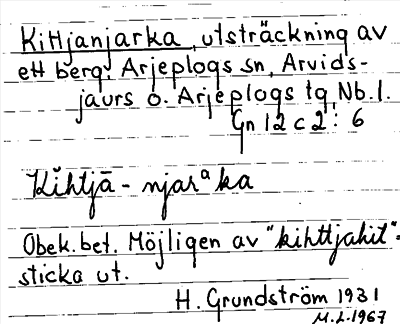 Kittjanjarka, utsträckning av
ett berg. Arjeplogs sn, Arvids-
jaurs o. Arjeplogs tg, Nb. l.
Gn 12 c 2: 6
Kĭhtjā - njarᵃka
Obek. bet. Möjligen av "kihttjahit"-
sticka ut.
H. Grundström 1931
M.L. 1967